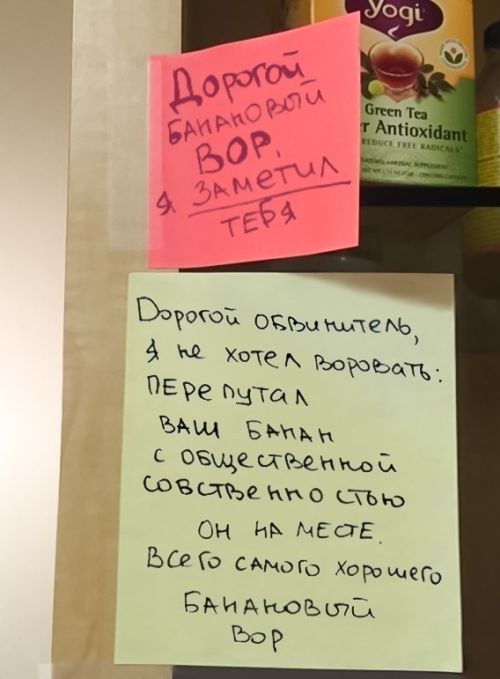 yogi
Green Tea
r Antioxidant
REDUCE FREE RADICALS
Дорогой
БАНАНОВЫЙ
ВОР,
Я ЗАМЕТИЛ
ТЕБЯ
Дорогой обвинитель,
я не хотел воровать:
ПЕРЕПУТАЛ
ВАШ БАНАН
С ОБЩЕСТВЕННОЙ
СОБСТВЕННОСТЬЮ
ОН НА МЕСТЕ.
ВСЕГО САМОГО ХОРОШЕГО
БАНАНОВЫЙ
ВОР